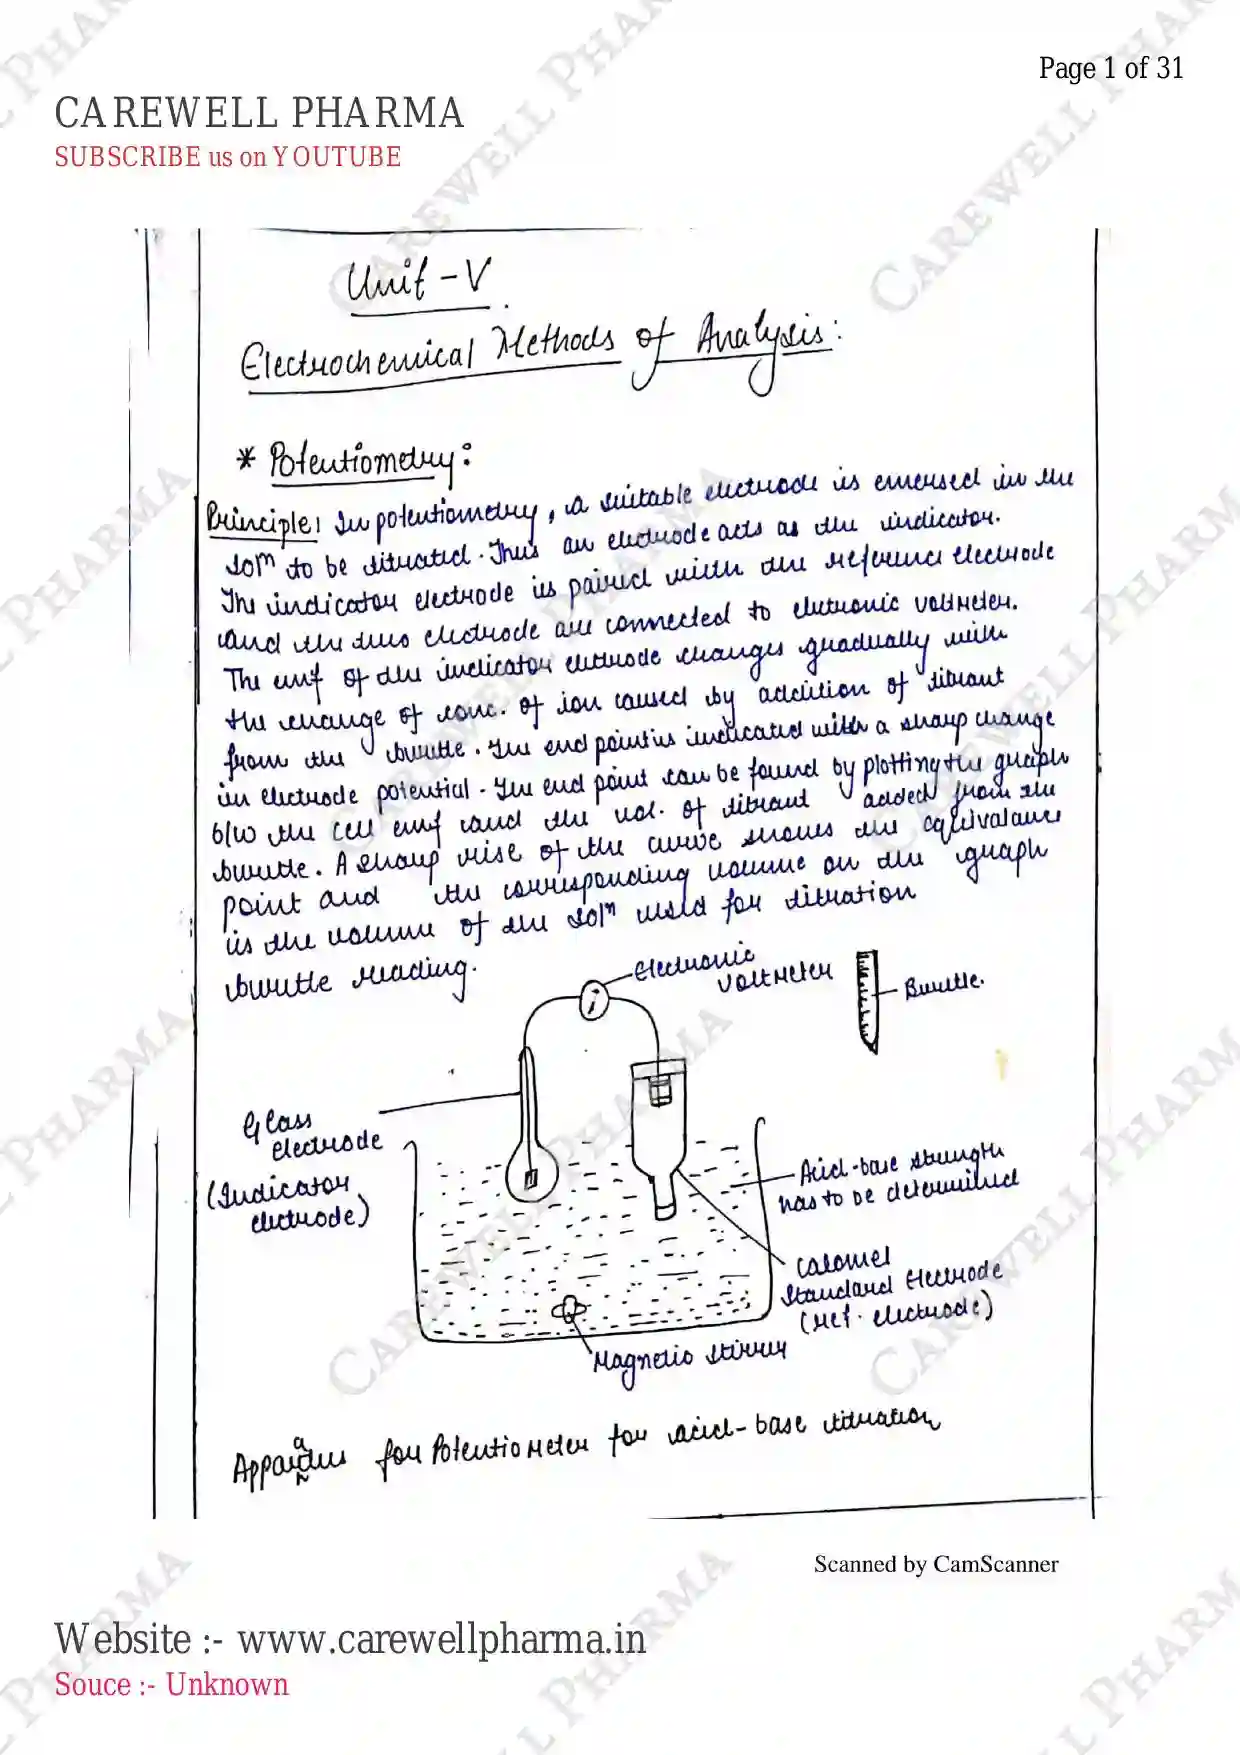 Page 1 of 31
CAREWELL PHARMA
SUBSCRIBE us on YOUTUBE
Unit - V
Electrochemical Methods of Analysis:
* Potentiometry:
Principle: In potentiometry, a suitable electrode is emersed in the
solⁿ to be titrated. Thus an electrode acts as the indicator.
The indicator electrode is paired with the reference electrode
and the two electrode are connected to electronic voltmeter.
The emf of the indicator electrode changes gradually with
the change of conc. of ion caused by addition of titrant
from the burette. The end point is indicated with a sharp change
in electrode potential. The end point can be found by plotting the graph
b/w the cell emf and the vol. of titrant added from the
burette. A sharp rise of the curve shows the equivalance
point and the corresponding volume on the graph
is the volume of the solⁿ used for titration
burette reading.
Electronic
voltmeter
Burette.
Glass
electrode
(Indicator
electrode)
Acid-base strength
has to be determined
Calomel
Standard Electrode
(Ref. electrode)
Magnetic stirrer
Apparatus for Potentiometer for acid-base titration
Scanned by CamScanner
Website :- www.carewellpharma.in
Souce :- Unknown